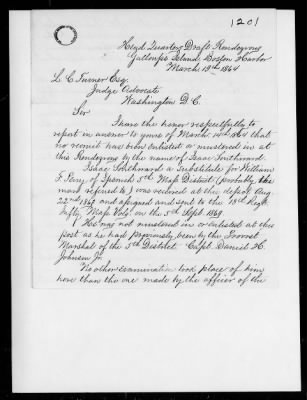 1201
Head Quarters Draft Rendezvous
Galloups Island, Boston Harbor
March 19th 1864
L. C. Turner Esq.
Judge Advocate
Washington D. C.
Sir
I have the honor respectfully to
report in answer to yours of March 14th 1864 that
no recruit has been enlisted or mustered in at
this Rendezvous by the name of Isaac Southward.
Isaac Southward a Substitute for William
F. of Ipswich 5th Mass District (probably the
man refered to) was received at this depot Aug
22nd 1863 and assigned and sent to the 18th Regt
Infty Mass Vols on the 5th Sept 1863
He was not mustered in or enlisted at this
post as he had previously been by the Provost
Marshal of the 5th District Capt. Daniel H.
Johnson Jr.
No other examination took place of him
here than the one made by the officer of the